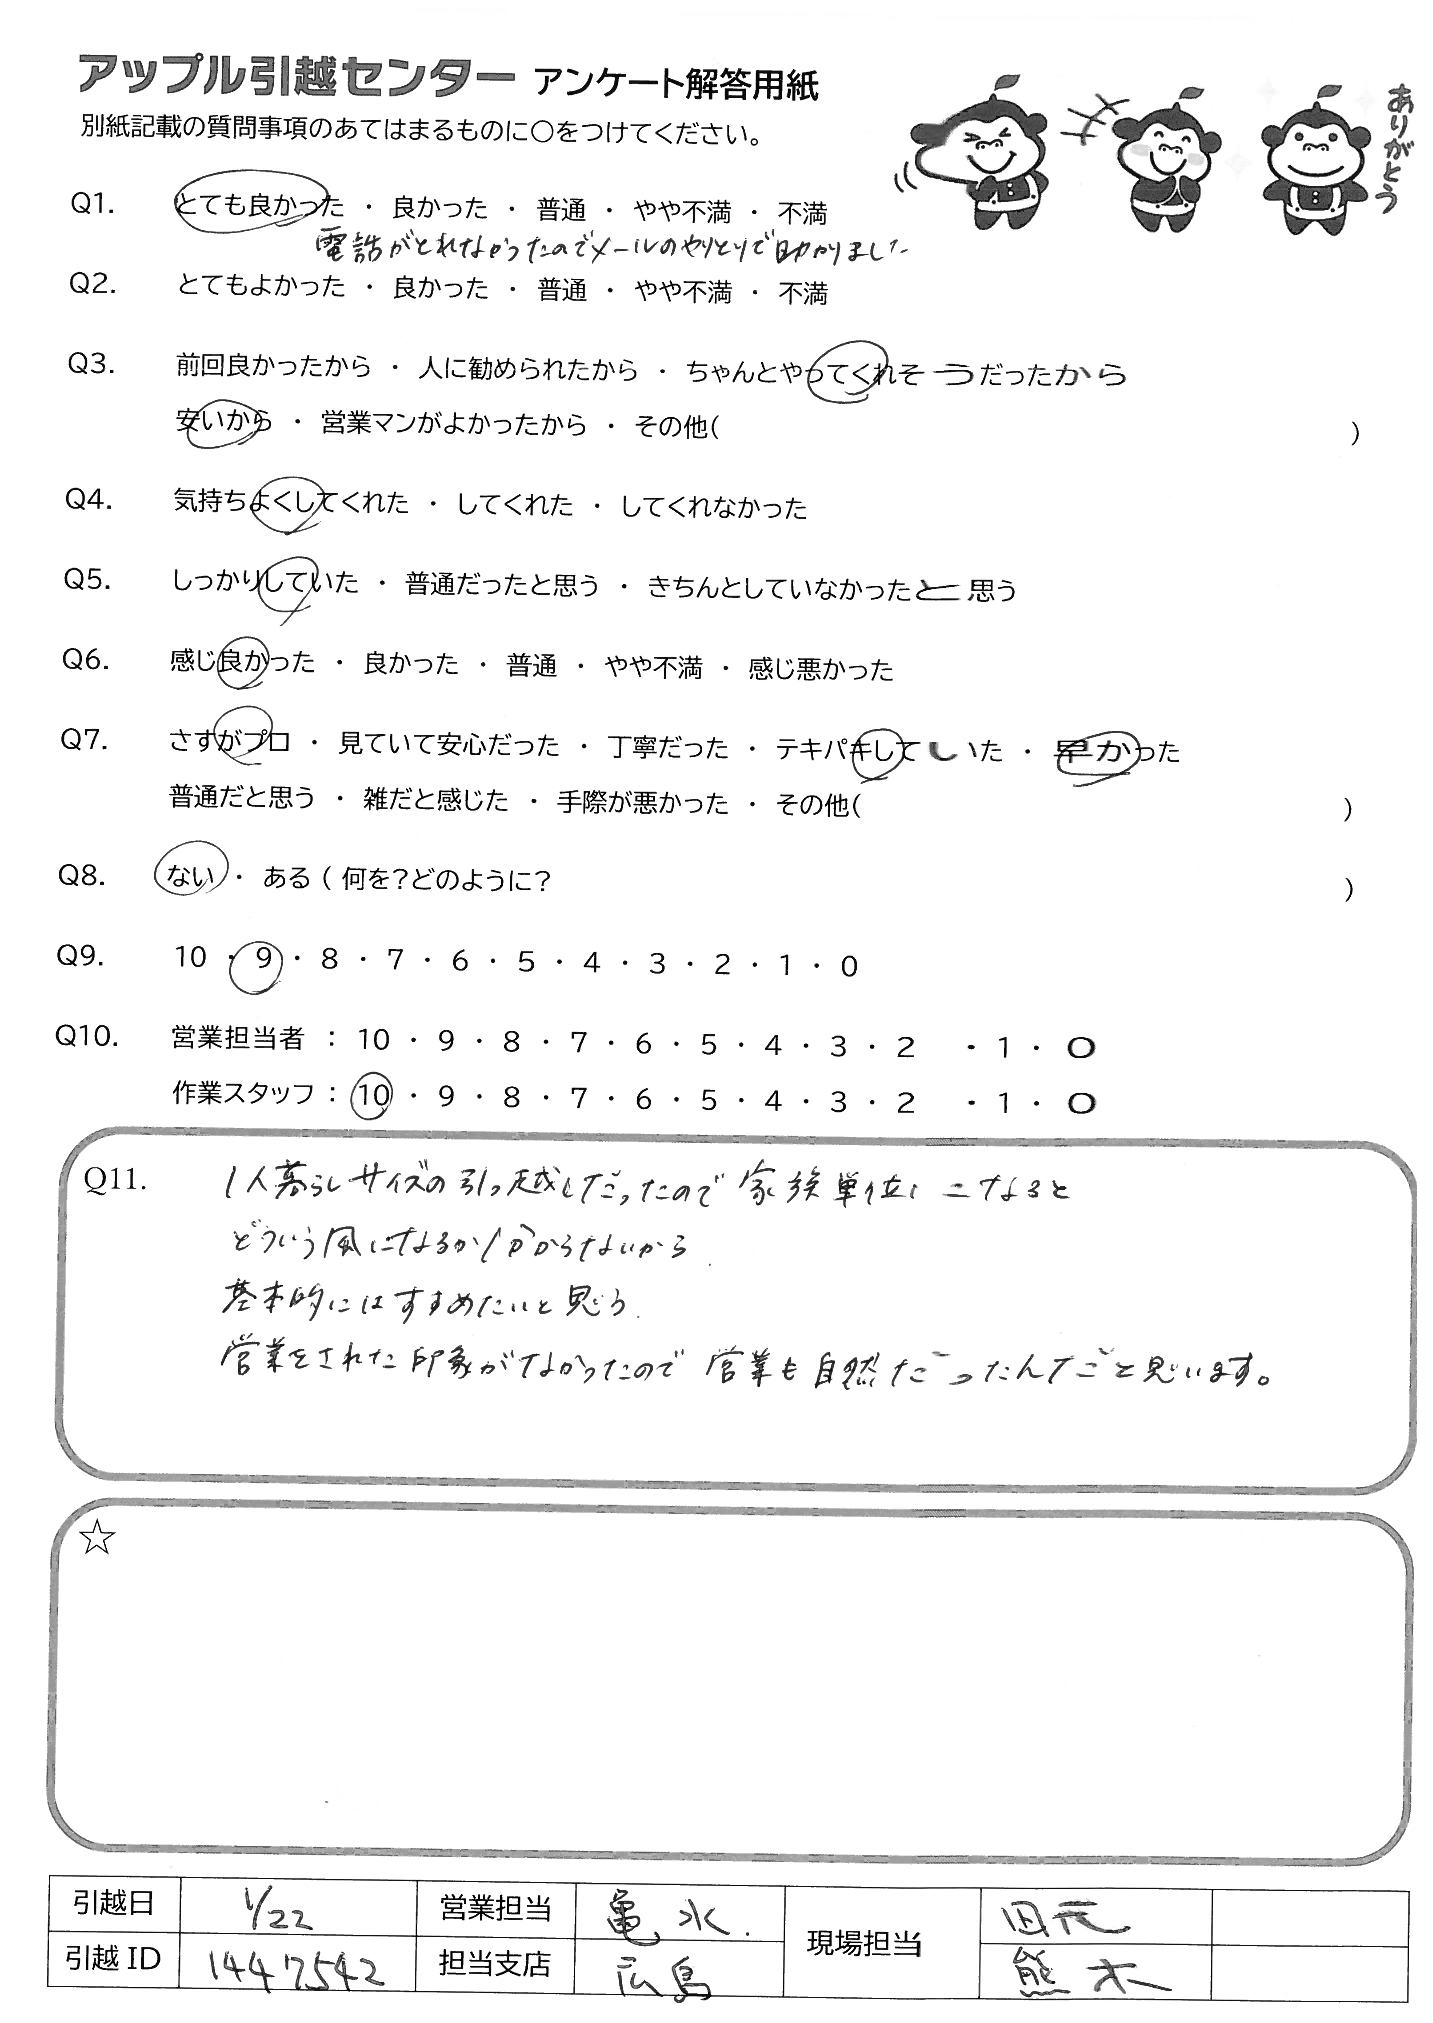 アップル引越センター アンケート解答用紙
ありがとう
別紙記載の質問事項のあてはまるものに○をつけてください。
Q1. とても良かった ・ 良かった ・ 普通 ・ やや不満 ・ 不満
電話がとれなかったのでメールのやりとりで助かりました
Q2. とてもよかった ・ 良かった ・ 普通 ・ やや不満 ・ 不満
Q3. 前回良かったから ・ 人に勧められたから ・ ちゃんとやってくれそうだったから
安いから ・ 営業マンがよかったから ・ その他( )
Q4. 気持ちよくしてくれた ・ してくれた ・ してくれなかった
Q5. しっかりしていた ・ 普通だったと思う ・ きちんとしていなかったと思う
Q6. 感じ良かった ・ 良かった ・ 普通 ・ やや不満 ・ 感じ悪かった
Q7. さすがプロ ・ 見ていて安心だった ・ 丁寧だった ・ テキパキしていた ・ 早かった
普通だと思う ・ 雑だと感じた ・ 手際が悪かった ・ その他( )
Q8. ない ・ ある ( 何を?どのように? )
Q9. 10 ・ 9 ・ 8 ・ 7 ・ 6 ・ 5 ・ 4 ・ 3 ・ 2 ・ 1 ・ 0
Q10. 営業担当者 : 10 ・ 9 ・ 8 ・ 7 ・ 6 ・ 5 ・ 4 ・ 3 ・ 2 ・ 1 ・ 0
作業スタッフ : 10 ・ 9 ・ 8 ・ 7 ・ 6 ・ 5 ・ 4 ・ 3 ・ 2 ・ 1 ・ 0
Q11. 1人暮らしサイズの引っ越しだったので家族単位になると
どういう風になるか分からないから.
基本的にはすすめたいと思う.
営業をされた印象がなかったので営業も自然だったんだと思います。
☆
引越日 1/22 営業担当 亀水. 現場担当 田元
引越ID 1447542 担当支店 広島 熊木